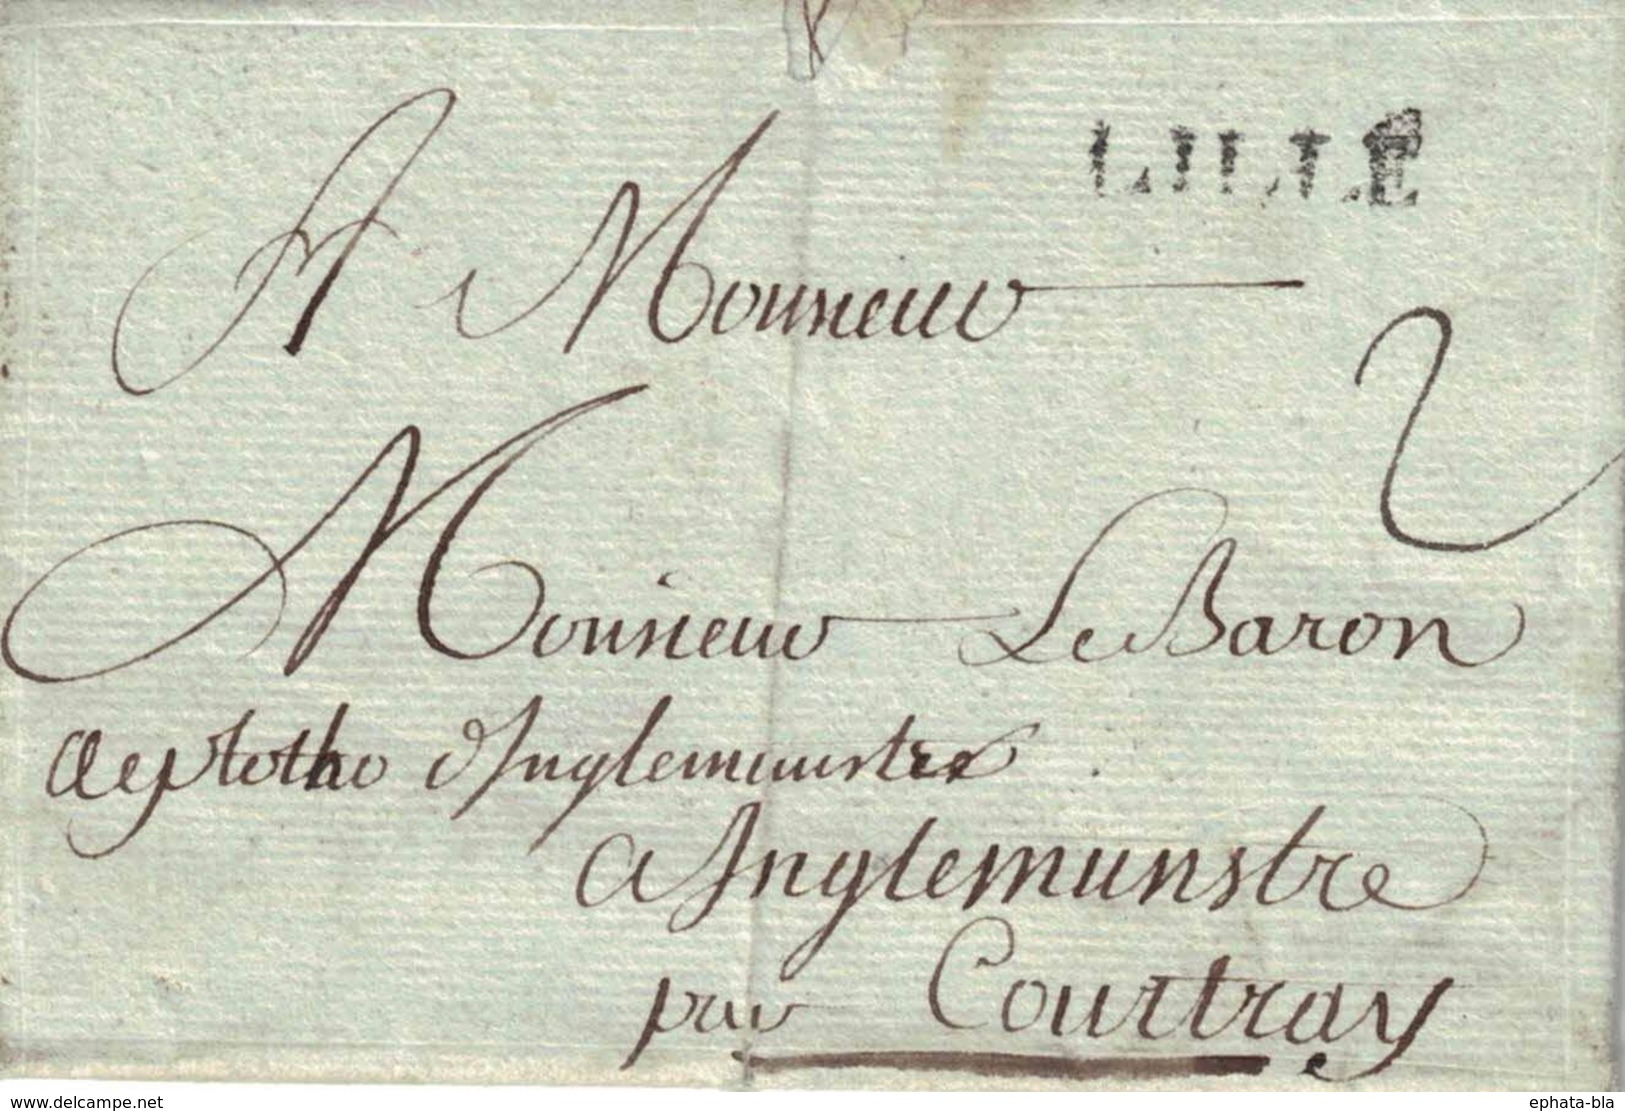 LILLE
A Monsieur
2
Monsieur Le Baron
de plotho d'Inglemunstre
a Inglemunstre
par Courtray
www.delcampe.net
ephata-bla